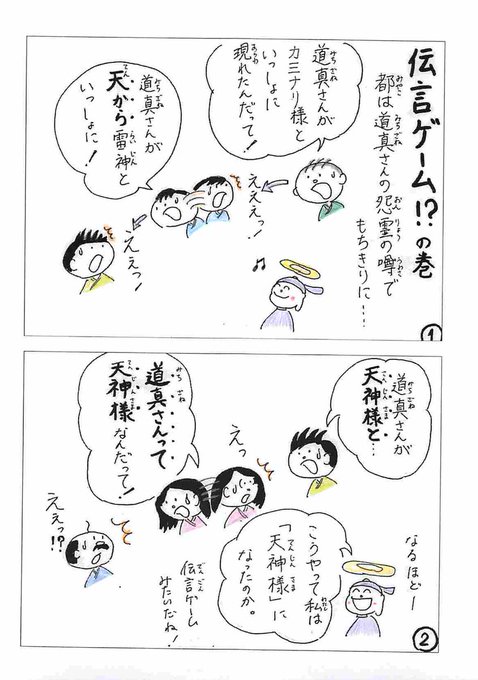 伝言ゲーム!?の巻
都は道真さんの怨霊の噂で
もちきりに……
道真さんが
カミナリ様と
いっしょに
現れたんだって!
えええっ!
道真さんが
天から雷神と
いっしょに!
ええっ!
1
道真さんが
天神様と…
えっ
道真さんって
天神様
なんだって!
ええっ!?
なるほどー
こうやって私は
「天神様」に
なったのか。
伝言ゲーム
みたいだね!
2